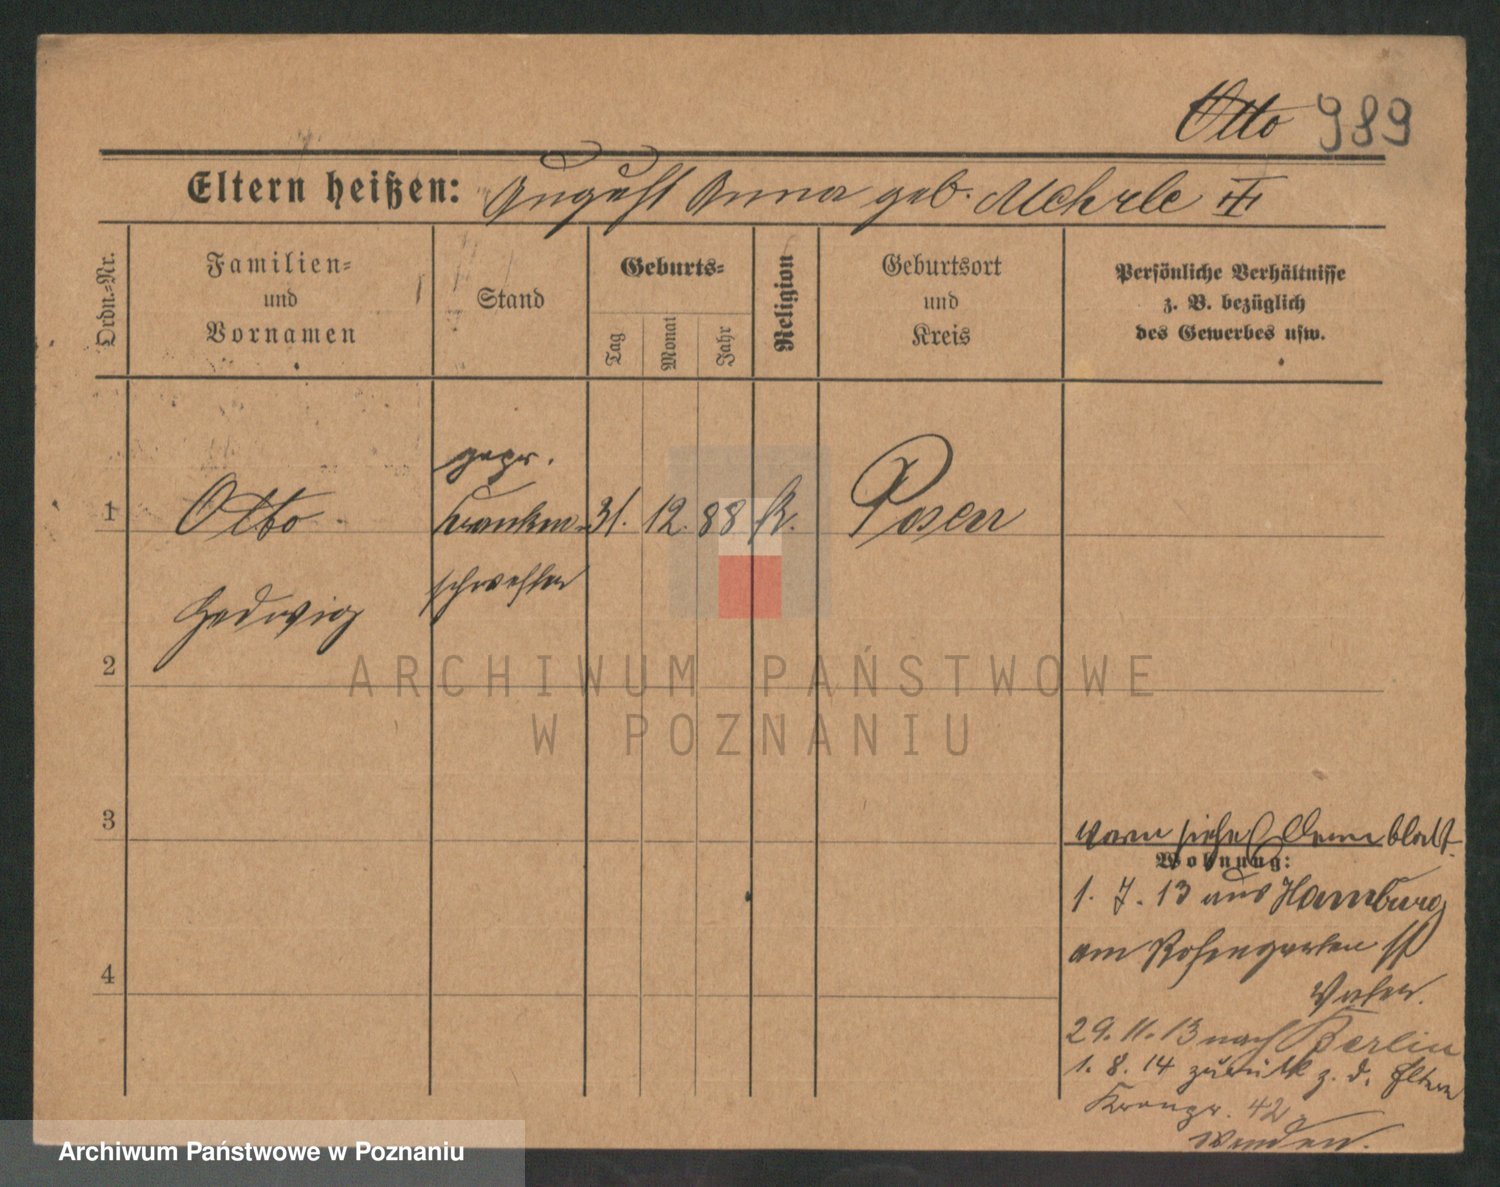 Otto 989
Eltern heißen: August Anna geb. Mehrle III
Ordn.-Nr.
Familien-
und
Vornamen
Stand
Geburts-
Tag
Monat
Jahr
Religion
Geburtsort
und
Kreis
Persönliche Verhältnisse
z. B. bezüglich
des Gewerbes usw.
gepr.
1 Otto Kranken- 31. 12. 88 k. Posen
schwester
Hedwig
2
ARCHIWUM PAŃSTWOWE
W POZNANIU
3
vorn siehe blatt.
Wohnung:
1. 7. 13 aus Hamburg
am Rosengarten
Vater.
29. 11. 13 nach Berlin
1. 8. 14 zurück z. d. Eltern
Kronpr. 42
wenden.
4
Archiwum Państwowe w Poznaniu